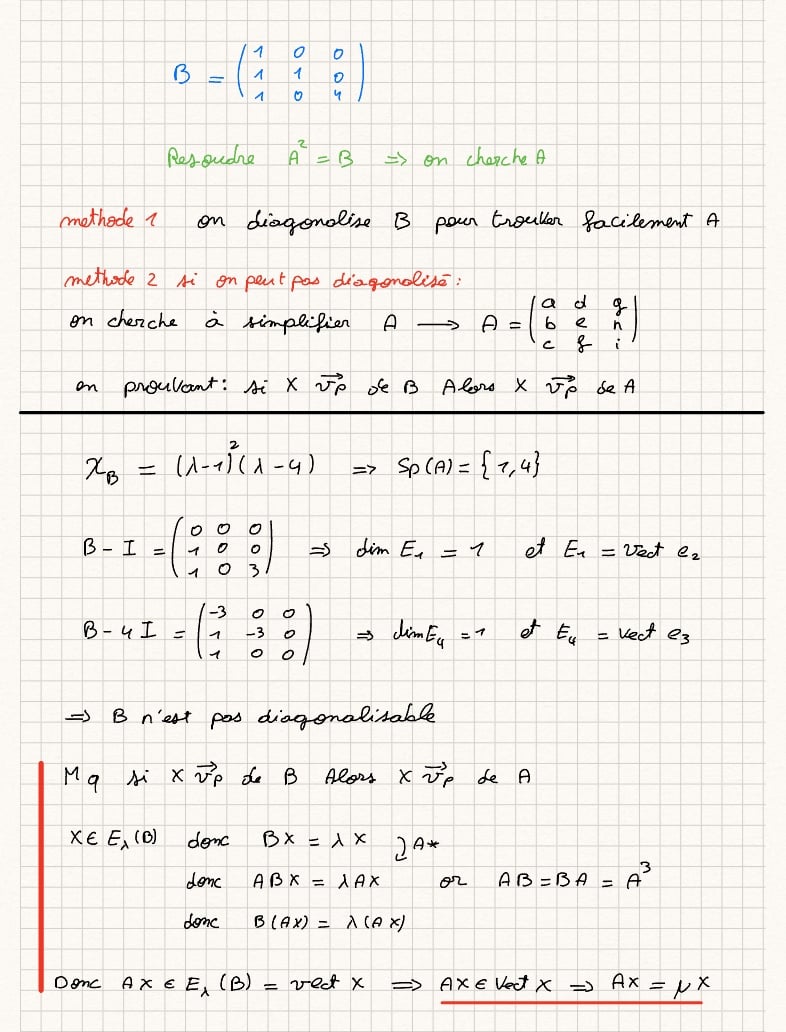 B = (1 0 0
1 1 0
1 0 4)
Resoudre A² = B => on cherche A
methode 1 on diagonalise B pour trouver facilement A
methode 2 si on peut pas diagonalisé :
on cherche à simplifier A → A = (a d g
b e h
c f i)
en prouvant : si X v⃗p de B Alors X v⃗p de A
χ_B = (λ-1)²(λ-4) => Sp(A) = {1,4}
B - I = (0 0 0
1 0 0
1 0 3) => dim E₁ = 1 et E₁ = Vect e₂
B - 4I = (-3 0 0
1 -3 0
1 0 0) => dim E₄ = 1 et E₄ = vect e₃
=> B n'est pas diagonalisable
Mq si X v⃗p de B Alors X v⃗p de A
X ∈ E_λ(B) donc BX = λX ⤵ A*
donc ABX = λAX or AB = BA = A³
donc B(AX) = λ(AX)
Donc AX ∈ E_λ(B) = vect X => AX ∈ Vect X => AX = μX